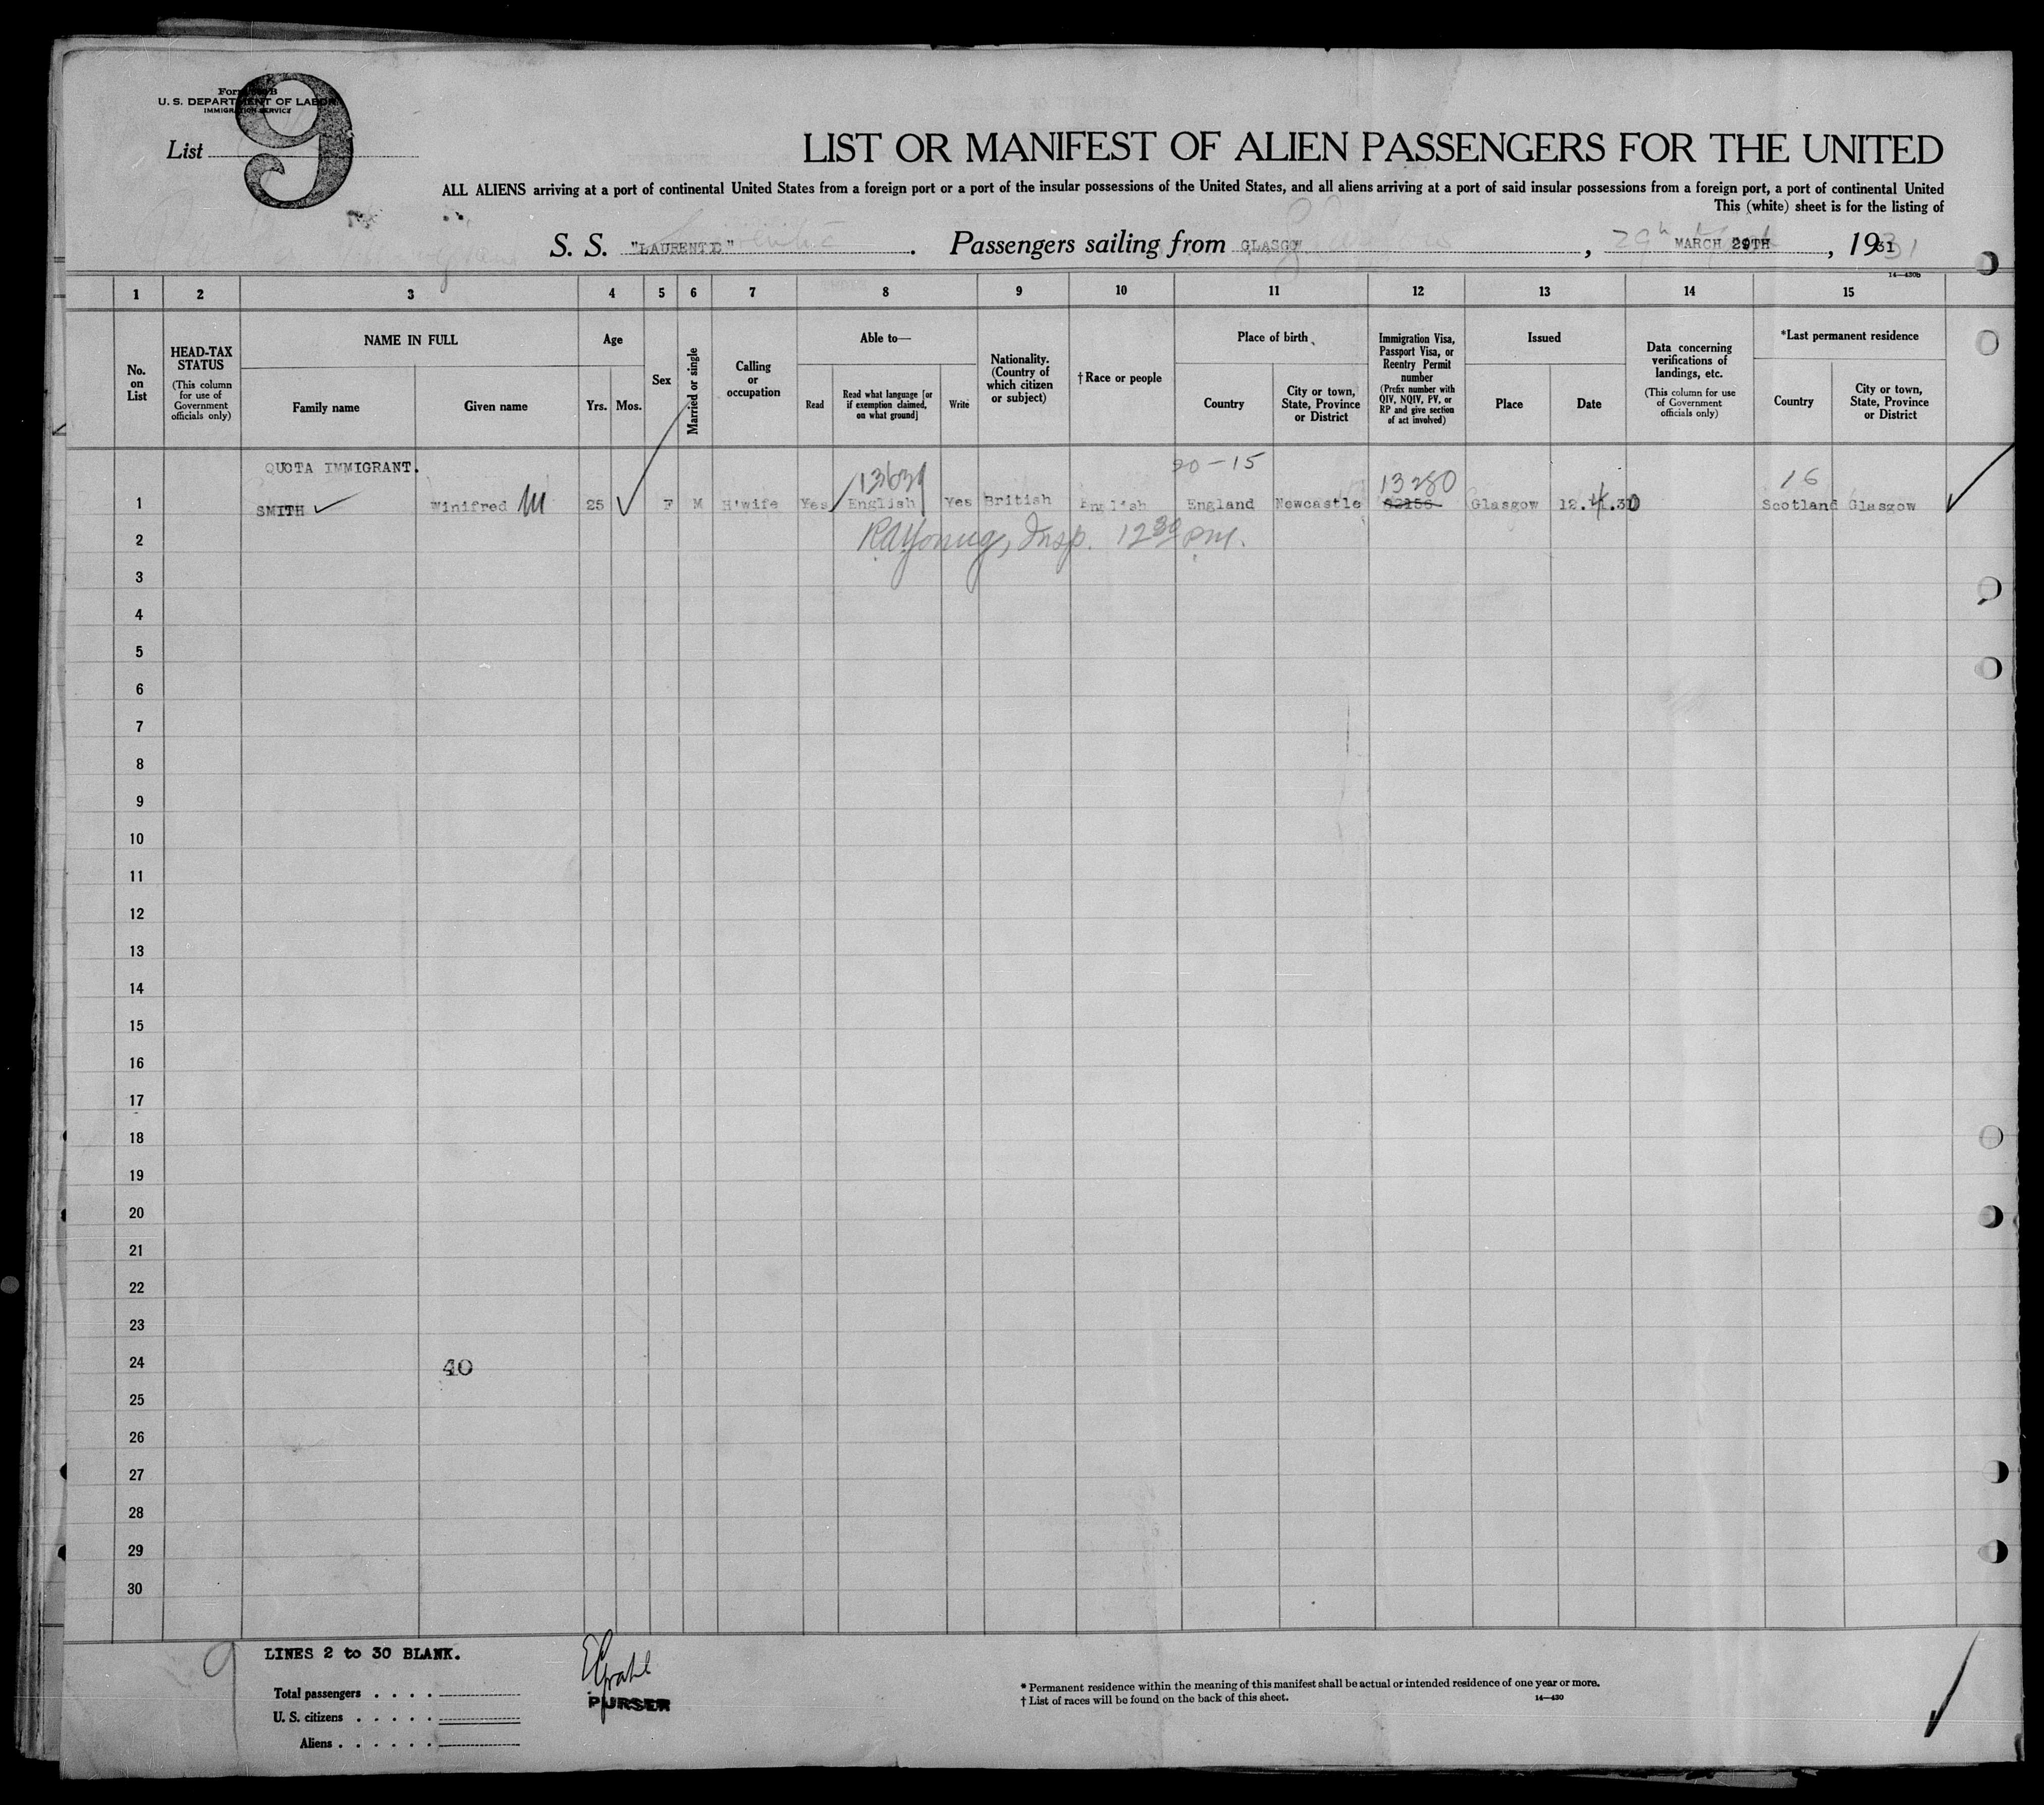 9
U. S. DEPARTMENT OF LABOR
IMMIGRATION SERVICE
List
LIST OR MANIFEST OF ALIEN PASSENGERS FOR THE UNITED
ALL ALIENS arriving at a port of continental United States from a foreign port or a port of the insular possessions of the United States, and all aliens arriving at a port of said insular possessions from a foreign port, a port of continental United
This (white) sheet is for the listing of
S. S. "LAURENTIC". Passengers sailing from GLASGOW, MARCH 29TH, 1931
14—430b
1 2 3 4 5 6 7 8 9 10 11 12 13 14 15
No. on List
HEAD-TAX STATUS (This column for use of Government officials only)
NAME IN FULL
Family name
Given name
Age
Yrs. Mos.
Sex
Married or single
Calling or occupation
Able to—
Read
Read what language [or if exemption claimed, on what ground]
Write
Nationality. (Country of which citizen or subject)
†Race or people
Place of birth
Country
City or town, State, Province or District
Immigration Visa, Passport Visa, or Reentry Permit number (Prefix number with QIV, NQIV, PV, or RP and give section of act involved)
Issued
Place
Date
Data concerning verifications of landings, etc. (This column for use of Government officials only)
*Last permanent residence
Country
City or town, State, Province or District
QUOTA IMMIGRANT.
20-15 13280 16
1 SMITH Winifred M 25 F M H'wife Yes English Yes British English England Newcastle Glasgow 12.4.30 Scotland Glasgow
2 RAYoung, Insp. 12 30 PM.
3
4
5
6
7
8
9
10
11
12
13
14
15
16
17
18
19
20
21
22
23
24 40
25
26
27
28
29
30
9
LINES 2 to 30 BLANK.
Total passengers
U. S. citizens
Aliens
PURSER
* Permanent residence within the meaning of this manifest shall be actual or intended residence of one year or more.
† List of races will be found on the back of this sheet.
14—430